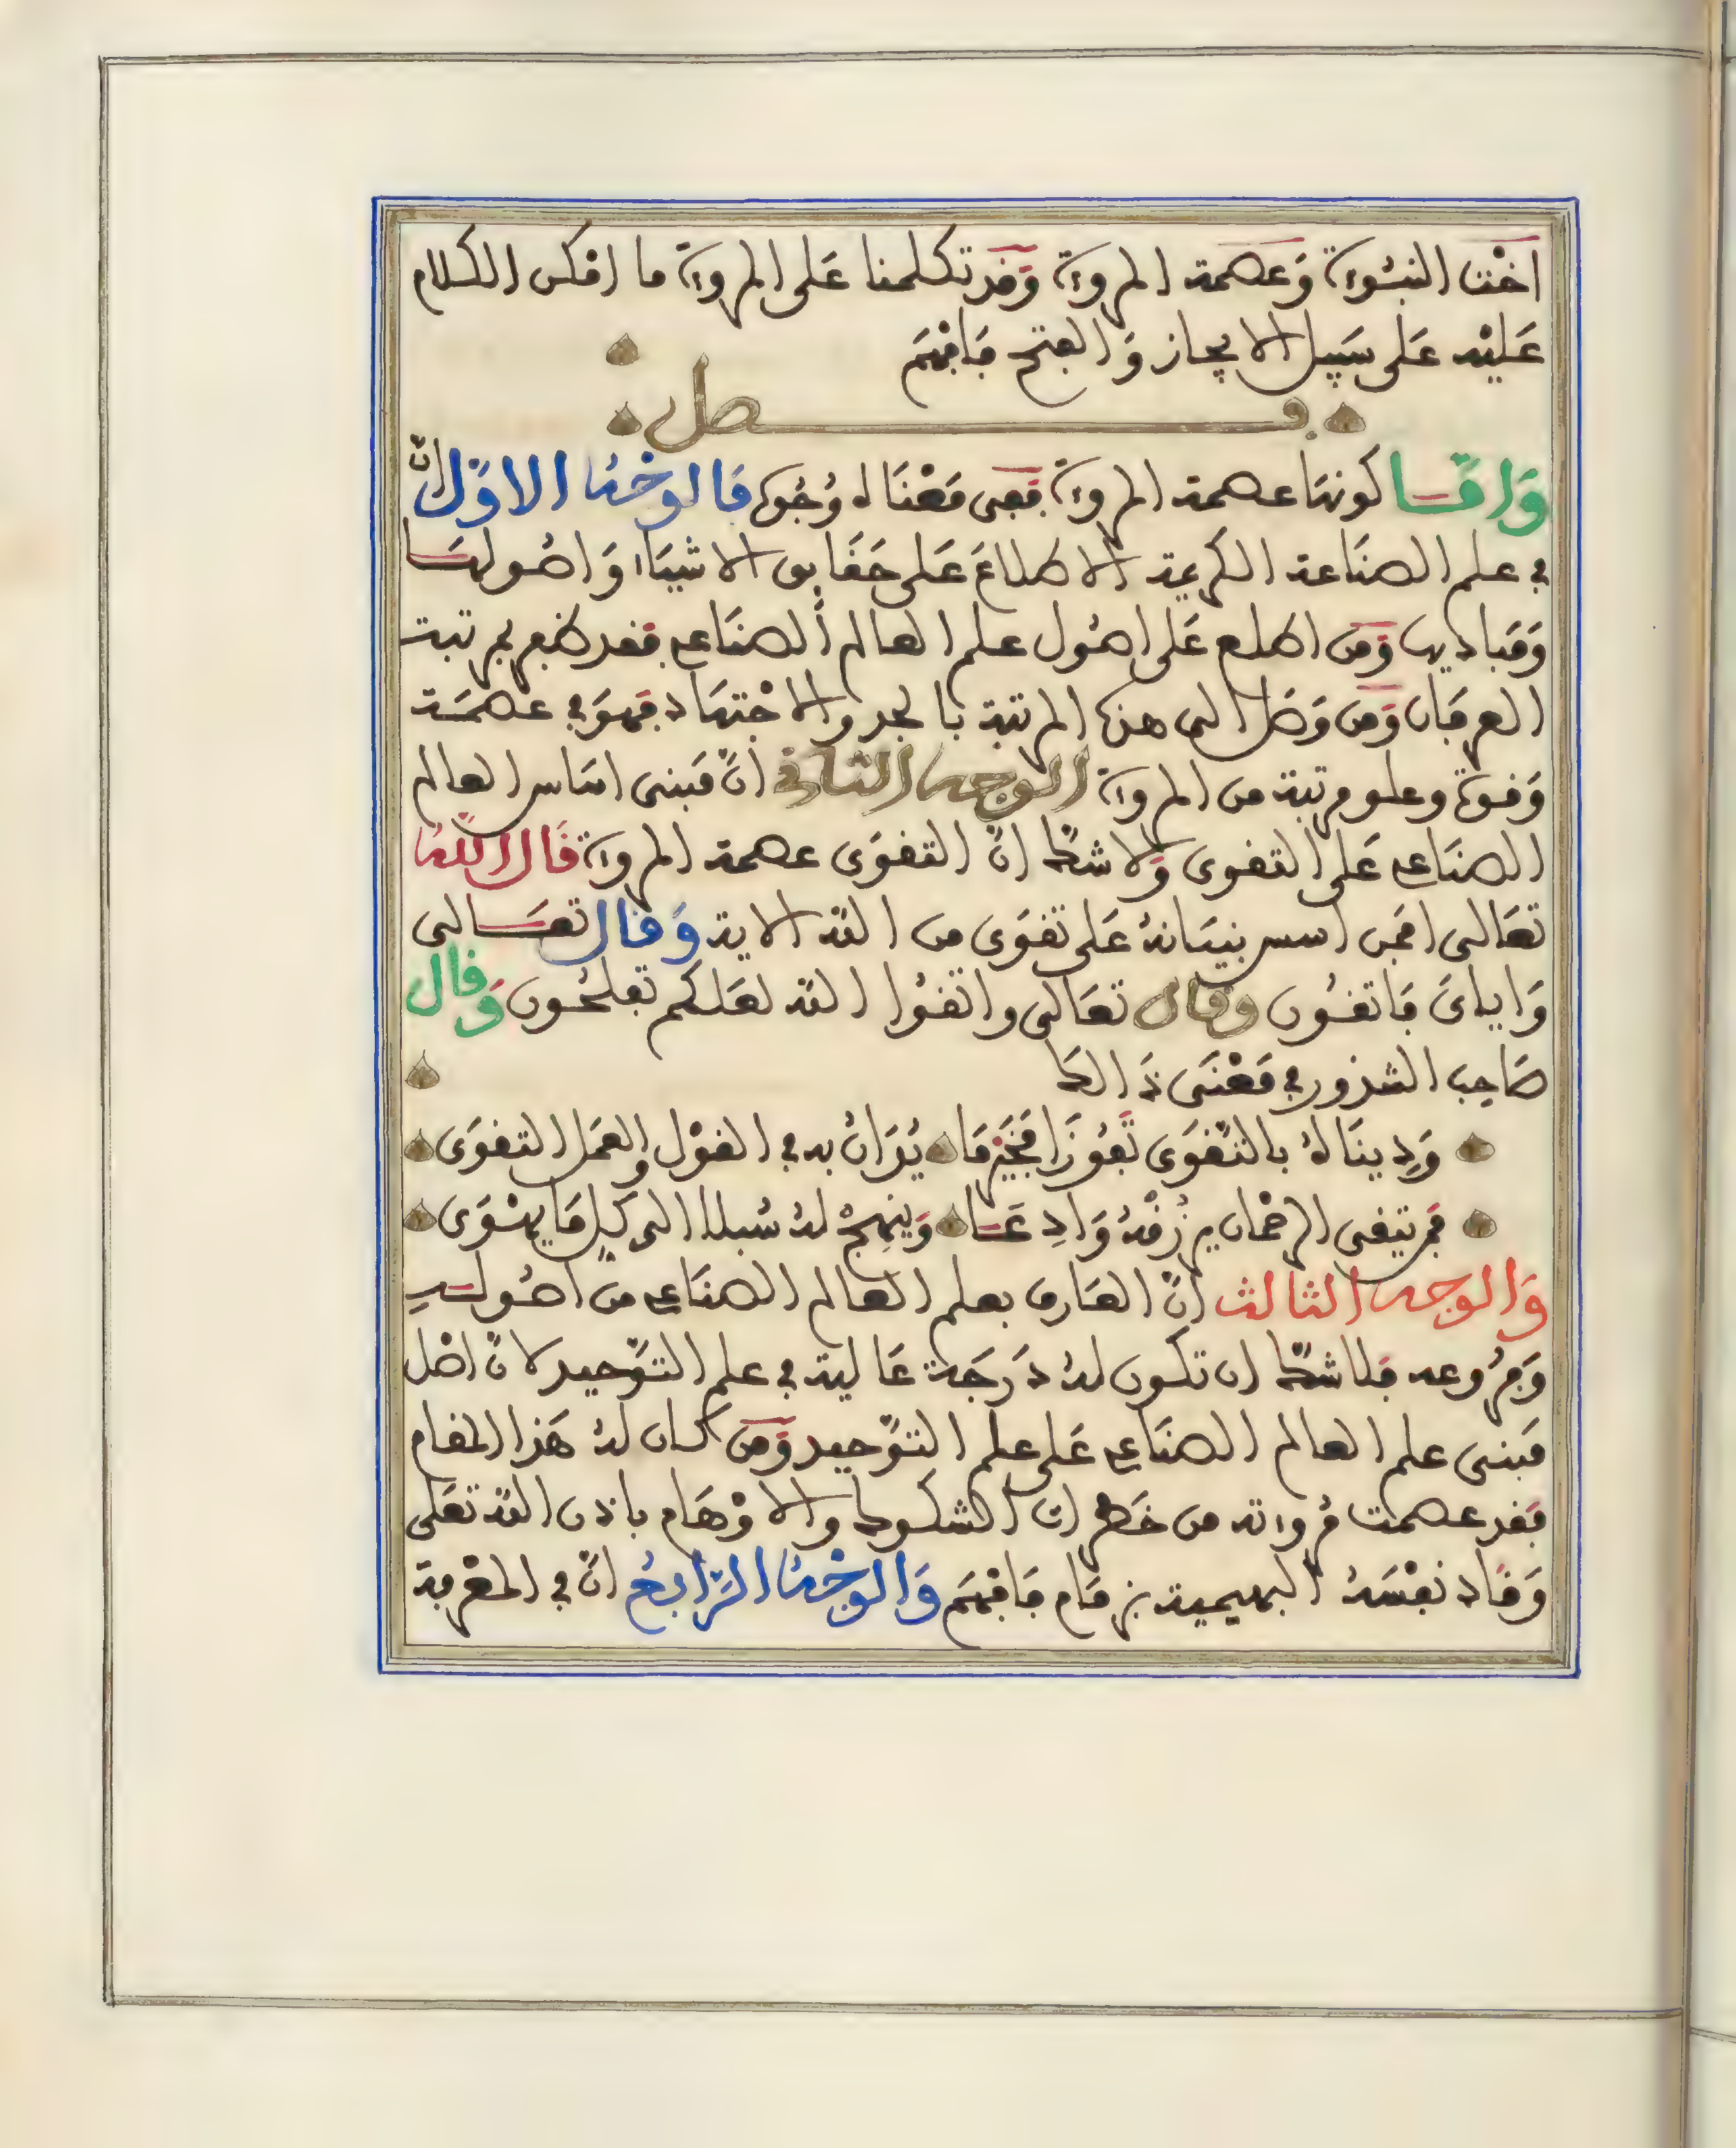 اخْت النبُوءة وَعصمة المروءة وَقد تكلمنا عَلى المروءة ما امكن الكلام
عَليْه عَلى سَبِيل الايجاز وَالفتح فَافهَم
فصل
وَامَّا كونهَا عصمة المروءة فَفى مَعْنَاه وُجُوه فَالوَجْهُ الاوّل انّ
في علم الصنَاعة الكريمة الاطلاعَ عَلى حَقَايق الاشيَاء وَاصُولهَا
وَمَبَاديها وَمَن اطلع عَلى اصُول علم العالم الصنَاعي فقد ظفر بمرتبة
العرفَان وَمن وَصَل الى هذه المرتبة بالجد والاجْتهَاد فهوَ في عصمَة
وَقوة وعلو مرتبة من المروءة الوجه الثاني انّ مَبنى اسَاس العالم
الصنَاعي عَلى التقوى وَلا شكّ انّ التقوَى عصمة المروءة قَال اللّهُ
تعَالى افمَن اسس بنيَانهُ عَلى تقوَى من اللّه الاية وَقال تعَالى
وَاياىَ فَاتقُون وقال تعَالى واتقوُا اللّه لعَلكم تفلحُون وَقال
صَاحِب الشذور في مَعْنَى ذَالكَ
وَدِينَالهُ بالتّقوَى تَّفوُزَا فَخَيْرمَا يُرَانُ به في القوْل والعمَل التقوَى
فمَن يتقى الرحْمَان يرْزُقْهُ وَادِعَا وَيَنهِجْ لهُ سُبلا الى كلّ مَا يهْوَى
وَالوجه الثالث انّ العَارف بعلم العالم الصنَاعي من اصُولهِ
وَفرُوعه فَلا شكّ ان تكون لهُ دَرَجَة عَالية في علم التّوْحيد لانّ اصْل
مَبنى علم العالم الصنَاعي عَلى علم التّوْحيد وَمَن كان لهُ هَذا المقام
فقد عصمت مُروءته من خَطرات الشكوك والاوْهَام باذن اللّه تعَلى
وَقَاد نفْسَهُ البهيمية بزمَام فَافهَم وَالوَجْهُ الرّابِعُ انّ في المعْرفة